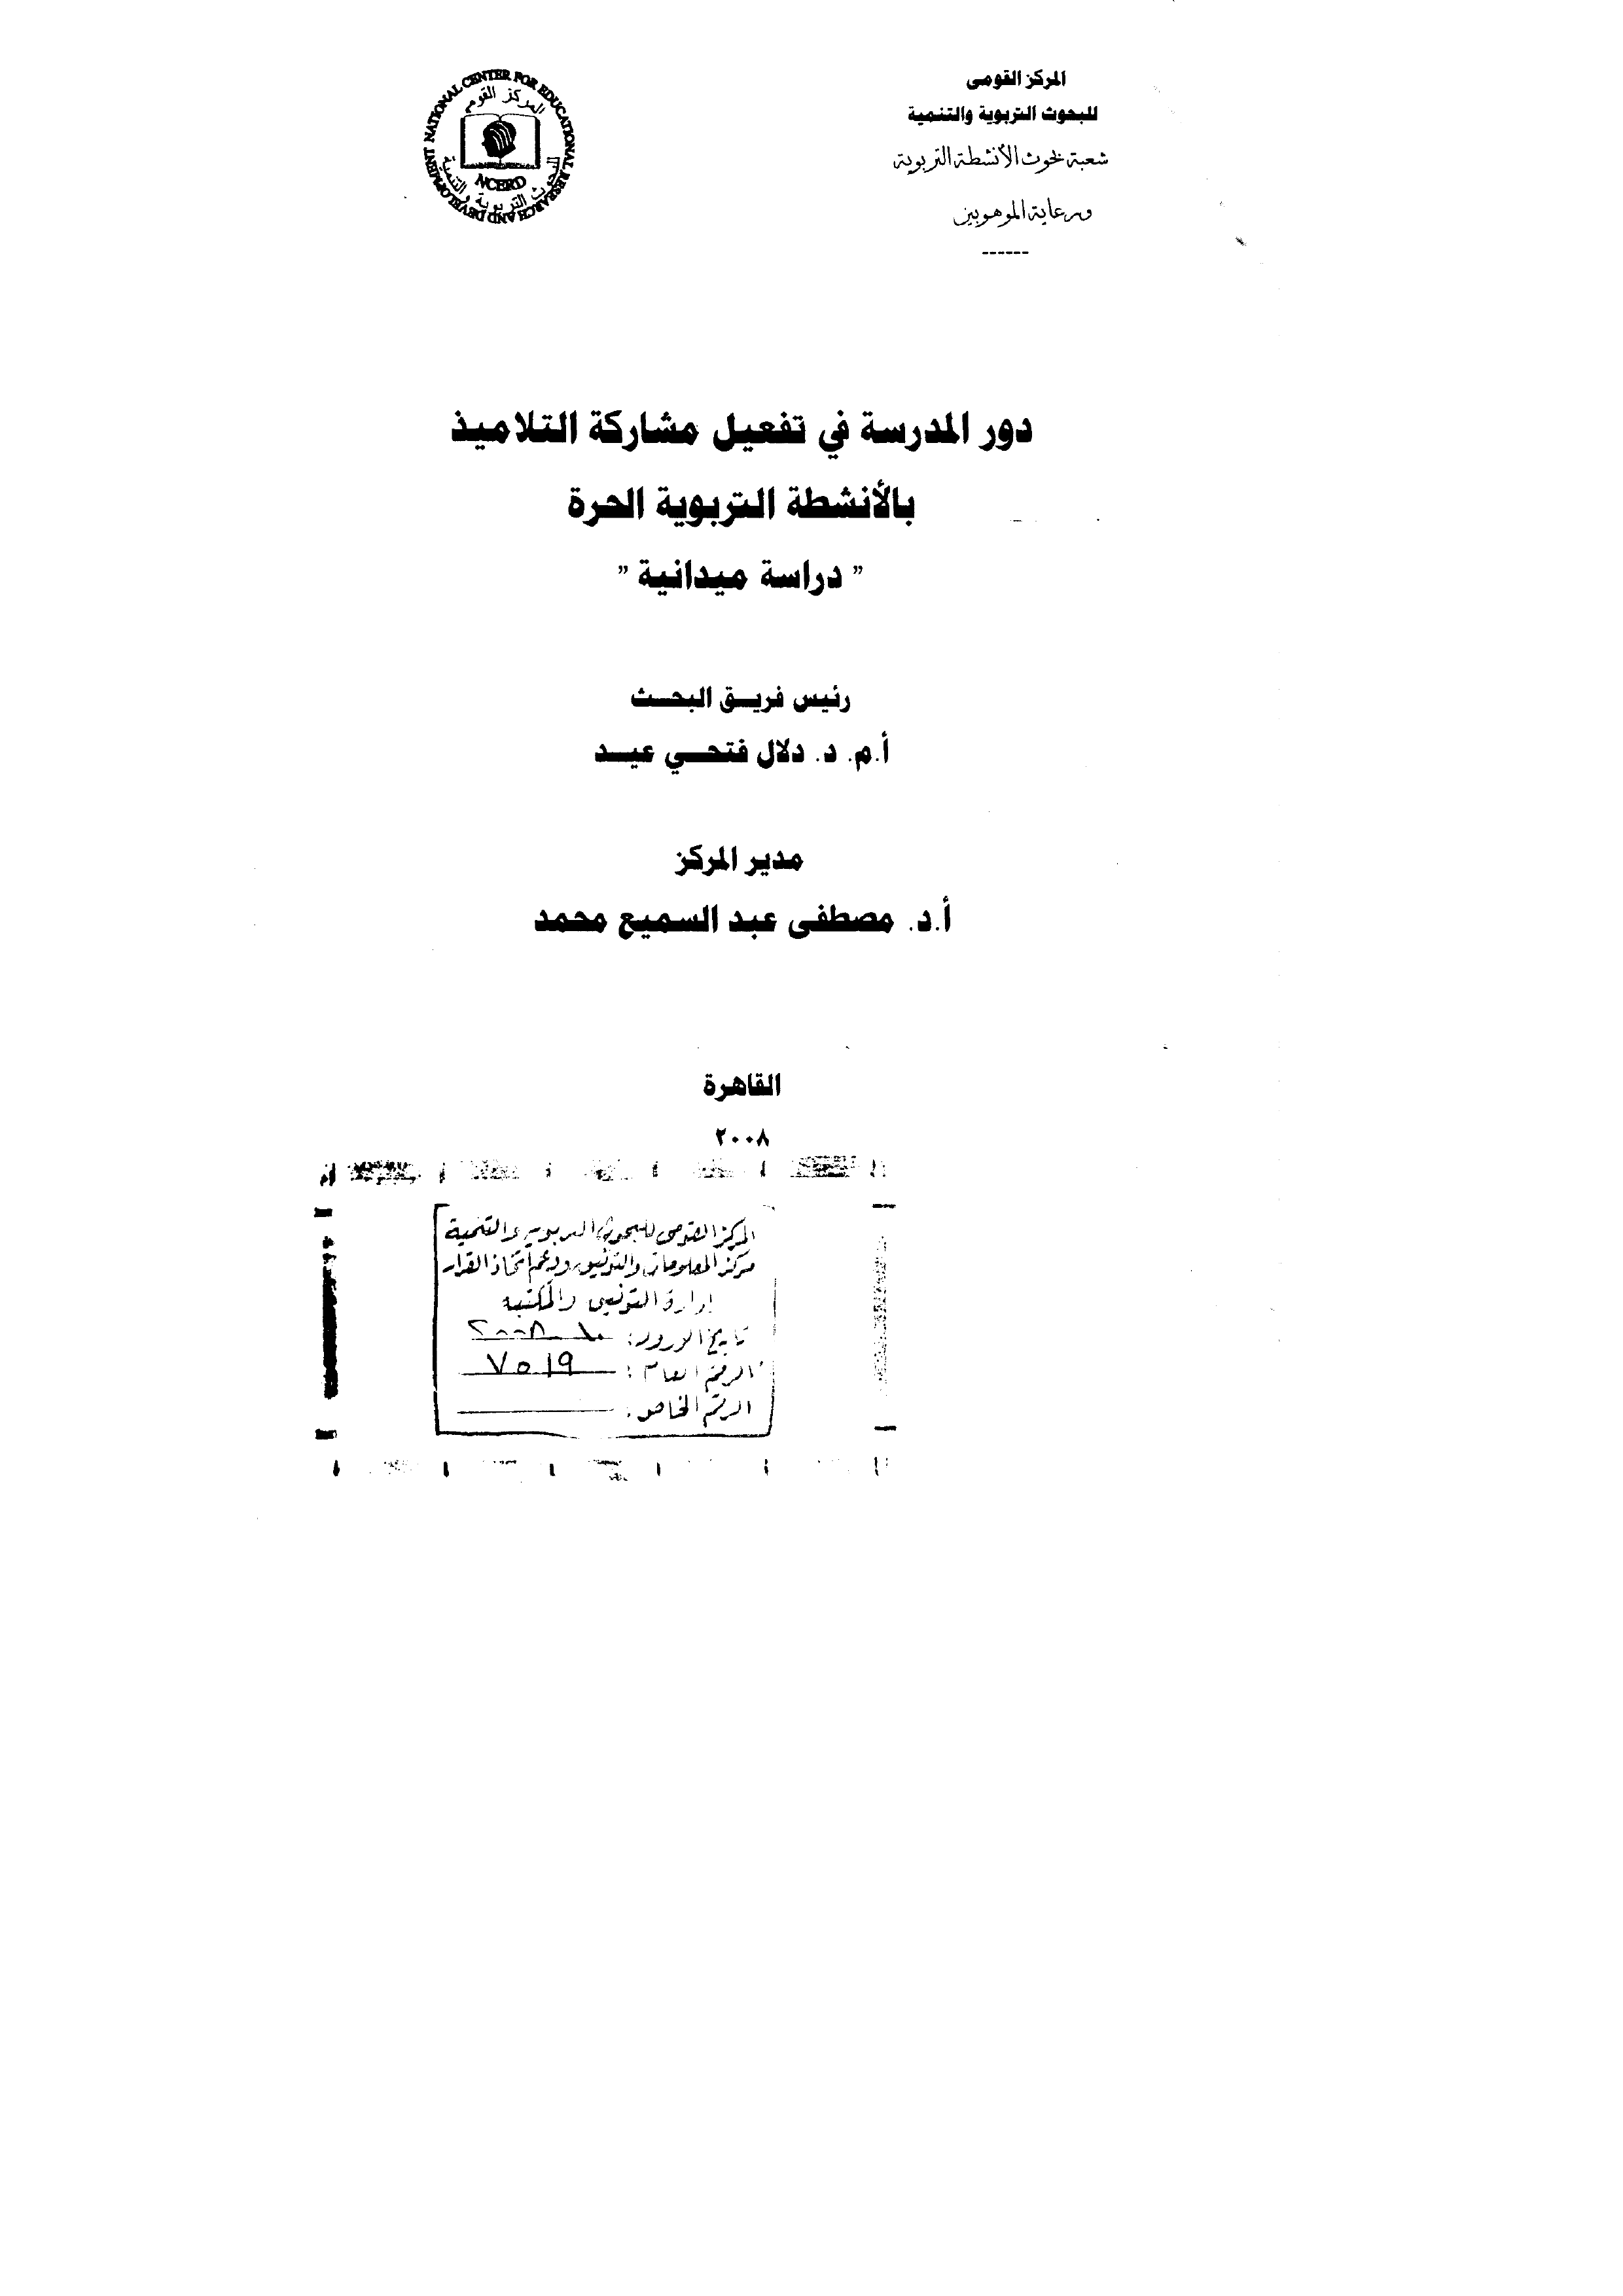 المركز القومى
للبحوث التربوية والتنمية
شعبة بحوث الأنشطة التربوية
ورعاية الموهوبين
------
NATIONAL CENTER FOR EDUCATIONAL RESEARCH AND DEVELOPMENT
المركز القومي
للبحوث التربوية والتنمية
NCERD
دور المدرسة في تفعيل مشاركة التلاميذ
بالأنشطة التربوية الحرة
" دراسة ميدانية "
رئيس فريق البحث
أ.م. د. دلال فتحي عيد
مدير المركز
أ.د. مصطفى عبد السميع محمد
القاهرة
٢٠٠٨
المركز القومى للبحوث التربوية والتنمية
مركز المعلومات والتوثيق ودعم اتخاذ القرار
إدارة التوثيق والمكتبة
تاريخ الورود: ٢٠٠٨
الرقم العام: ٧٥١٩
الرقم الخاص: